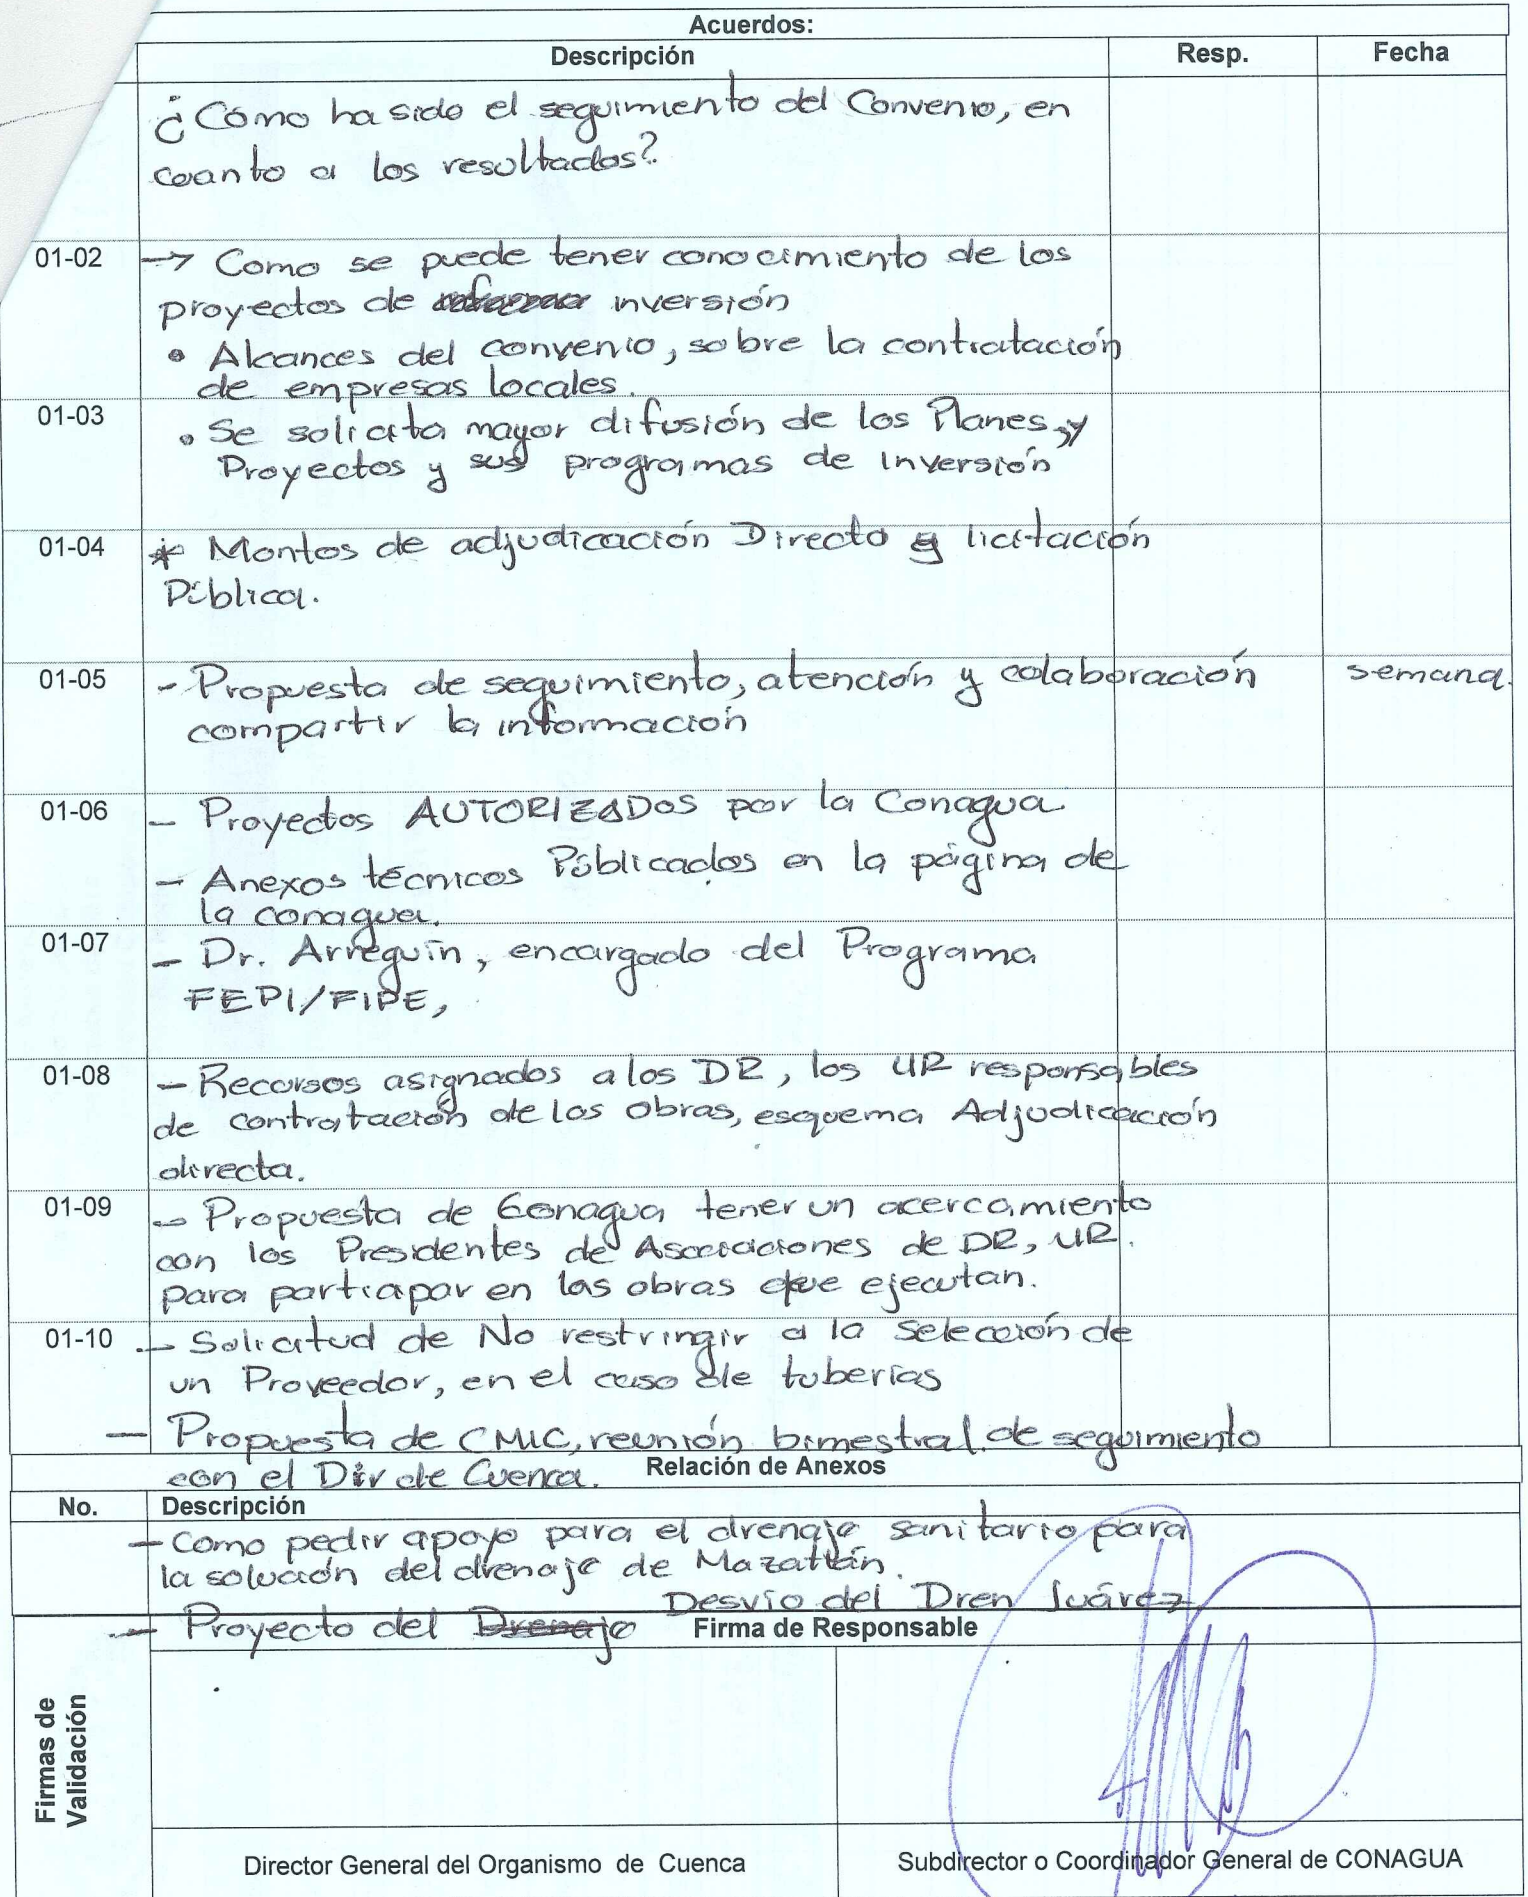 Acuerdos:
Descripción Resp. Fecha
¿Cómo ha sido el seguimiento del Convenio, en
cuanto a los resultados?
01-02 → Como se puede tener conocimiento de los
proyectos de inversión
• Alcances del convenio, sobre la contratación
de empresas locales.
01-03 • Se solicita mayor difusión de los Planes, y
Proyectos y sus programas de Inversión
01-04 * Montos de adjudicación Directo y licitación
Pública.
01-05 - Propuesta de seguimiento, atención y colaboración semana.
compartir la información
01-06 - Proyectos AUTORIZADOS por la Conagua
- Anexos técnicos Públicados en la página de
la conagua.
01-07 - Dr. Arreguín, encargado del Programa
FEPI/FIPE,
01-08 - Recursos asignados a los DR, los UR responsables
de contratación de los obras, esquema Adjudicación
directa.
01-09 - Propuesta de Conagua tener un acercamiento
con los Presidentes de Asociaciones de DR, UR.
para particapar en las obras que ejecutan.
01-10 - Solicitud de No restringir a la selección de
un Proveedor, en el caso de tuberías
- Propuesta de CMIC, reunión bimestral de seguimiento
con el Dir de Cuenca. Relación de Anexos
No. Descripción
- Como pedir apoyo para el drenaje sanitario para
la solución del drenaje de Mazatlán.
Desvío del Dren Juárez
- Proyecto del Drenaje Firma de Responsable
Firmas de
Validación
Director General del Organismo de Cuenca Subdirector o Coordinador General de CONAGUA